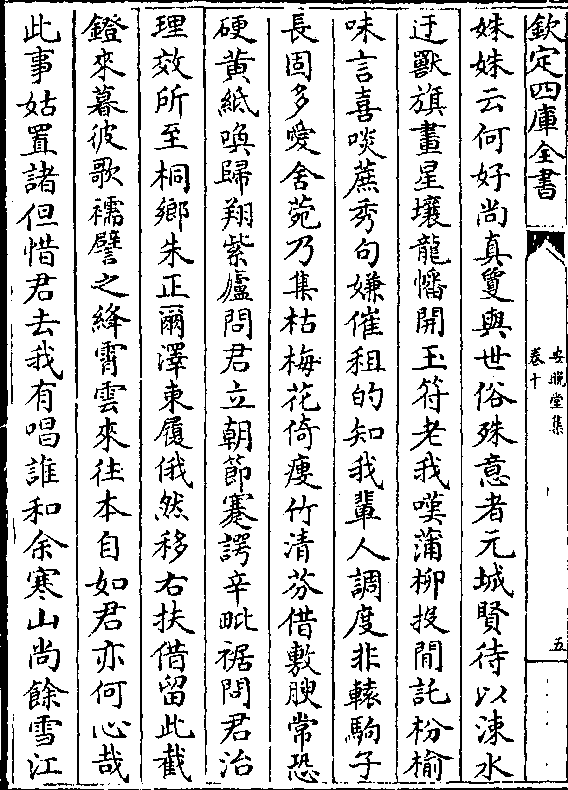 欽定四庫全書
安晚堂集
卷十
五
姝姝云何好尚真㚆與世俗殊意者元城賢待以涑水
迂獸旗畫星壤龍幡開玉符老我嘆蒲柳投閒託枌榆
味言喜啖蔗秀句嫌催租的知我輩人調度非轅駒子
長固多愛舍菀乃集枯梅花倚瘦竹清芬借敷腴常恐
硬黄紙喚歸翔紫廬問君立朝節蹇諤辛毗裾問君治
理效所至桐鄉朱正爾澤東履俄然移右扶借留此截
鐙來暮彼歌襦譬之絳霄雲來往本自如君亦何心哉
此事姑置諸但惜君去我有唱誰和余寒山尚餘雪江